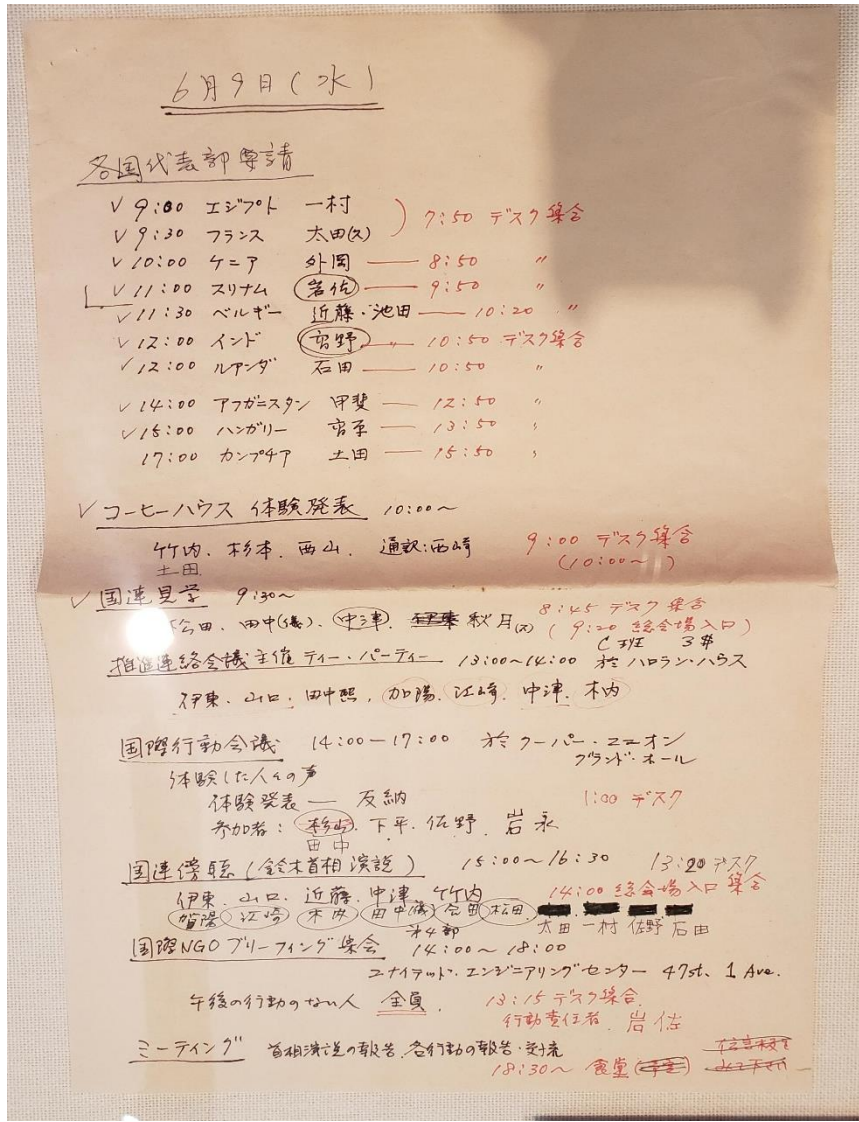 6月9日(水)
各国代表部要請
✓ 9:00 エジプト 一村
✓ 9:30 フランス 太田(久) ) 7:50 デスク集合
✓ 10:00 ケニア 外岡 — 8:50 〃
✓ 11:00 スリナム 岩佐 — 9:50 〃
✓ 11:30 ベルギー 近藤・池田 — 10:20 〃
✓ 12:00 インド — 10:50 デスク集合
✓ 12:00 ルアンダ 石田 — 10:50 〃
✓ 14:00 アフガニスタン 甲斐 — 12:50 〃
✓ 15:00 ハンガリー — 13:50 〃
17:00 カンプチア 土田 — 15:50 〃
✓ コーヒーハウス 体験発表 10:00〜
竹内. 杉本. 西山. 通訳:西崎 9:00 デスク集合
土田 (10:00〜 )
✓ 国連見学 9:30〜
松田. 田中(儀). 中津. 秋月 8:45 デスク集合
(9:20 総会場入口)
推進連絡会議主催 ティー・パーティー 13:00〜14:00 於 ハロラン・ハウス
伊東. 山口. 田中熙. 加陽. 江崎. 中津. 木内
国際行動会議 14:00—17:00 於 クーパー・ユニオン
グランド・ホール
体験した人々の声
体験発表 — 反納 1:00 デスク
参加者: 杉山. 下平. 佐野. 岩永
田中
国連傍聴(鈴木首相演説) 15:00〜16:30 13:20 デスク
伊東. 山口. 近藤. 中津. 竹内 14:00 総会場入口 集合
賀陽 江崎 木内 田中(儀) 松田 太田 一村 佐野 石田
国際NGOブリーフィング集会 14:00〜18:00
ユナイテッド・エンジニアリングセンター 47st. 1 Ave.
午後の行動のない人 全員. 13:15 デスク集合.
行動責任者. 岩佐
ミーティング 首相演説の報告. 各行動の報告・交流
18:30〜 食堂